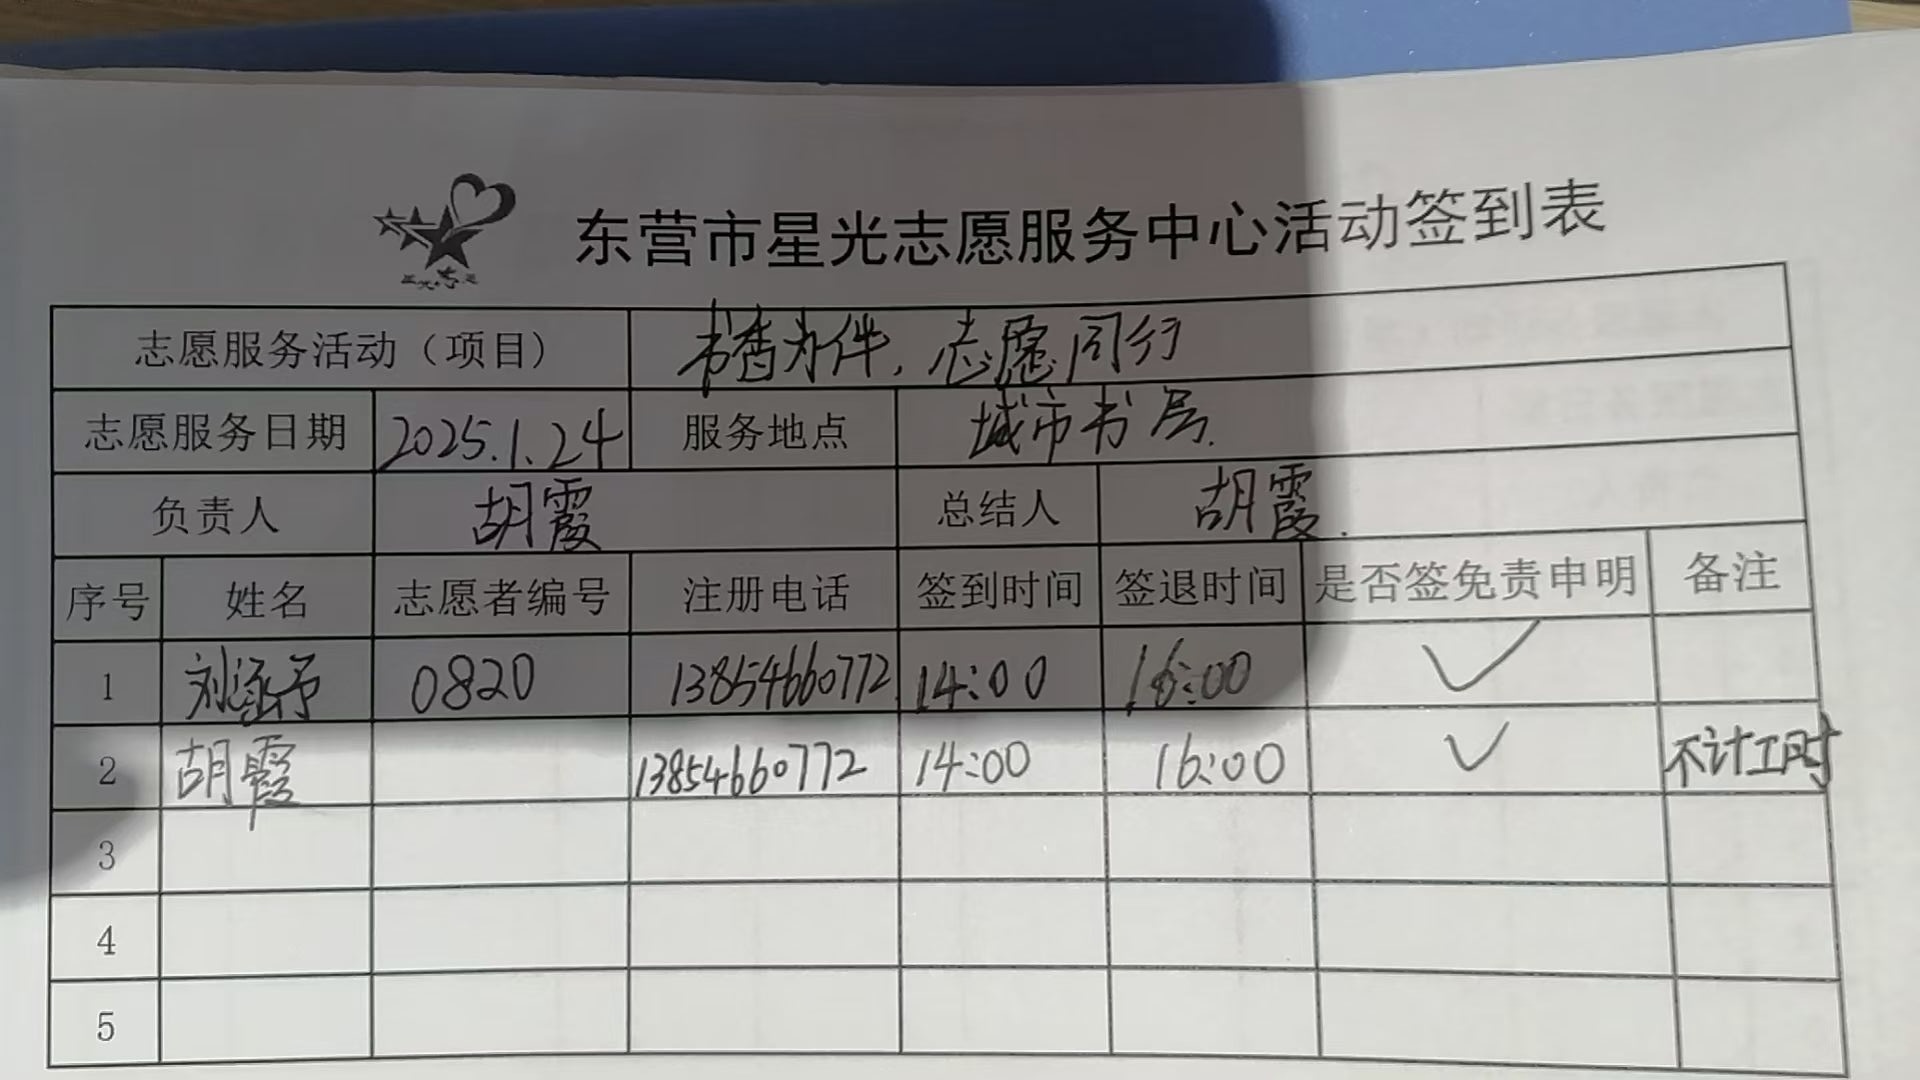 东营市星光志愿服务中心活动签到表
志愿服务活动（项目） 书香为伴，志愿同行
志愿服务日期 2025.1.24 服务地点 城市书房.
负责人 胡霞 总结人 胡霞.
序号 姓名 志愿者编号 注册电话 签到时间 签退时间 是否签免责申明 备注
1 刘涵予 0820 13854660772 14:00 16:00 ✓
2 胡霞 13854660772 14:00 16:00 ✓ 不计工时
3
4
5